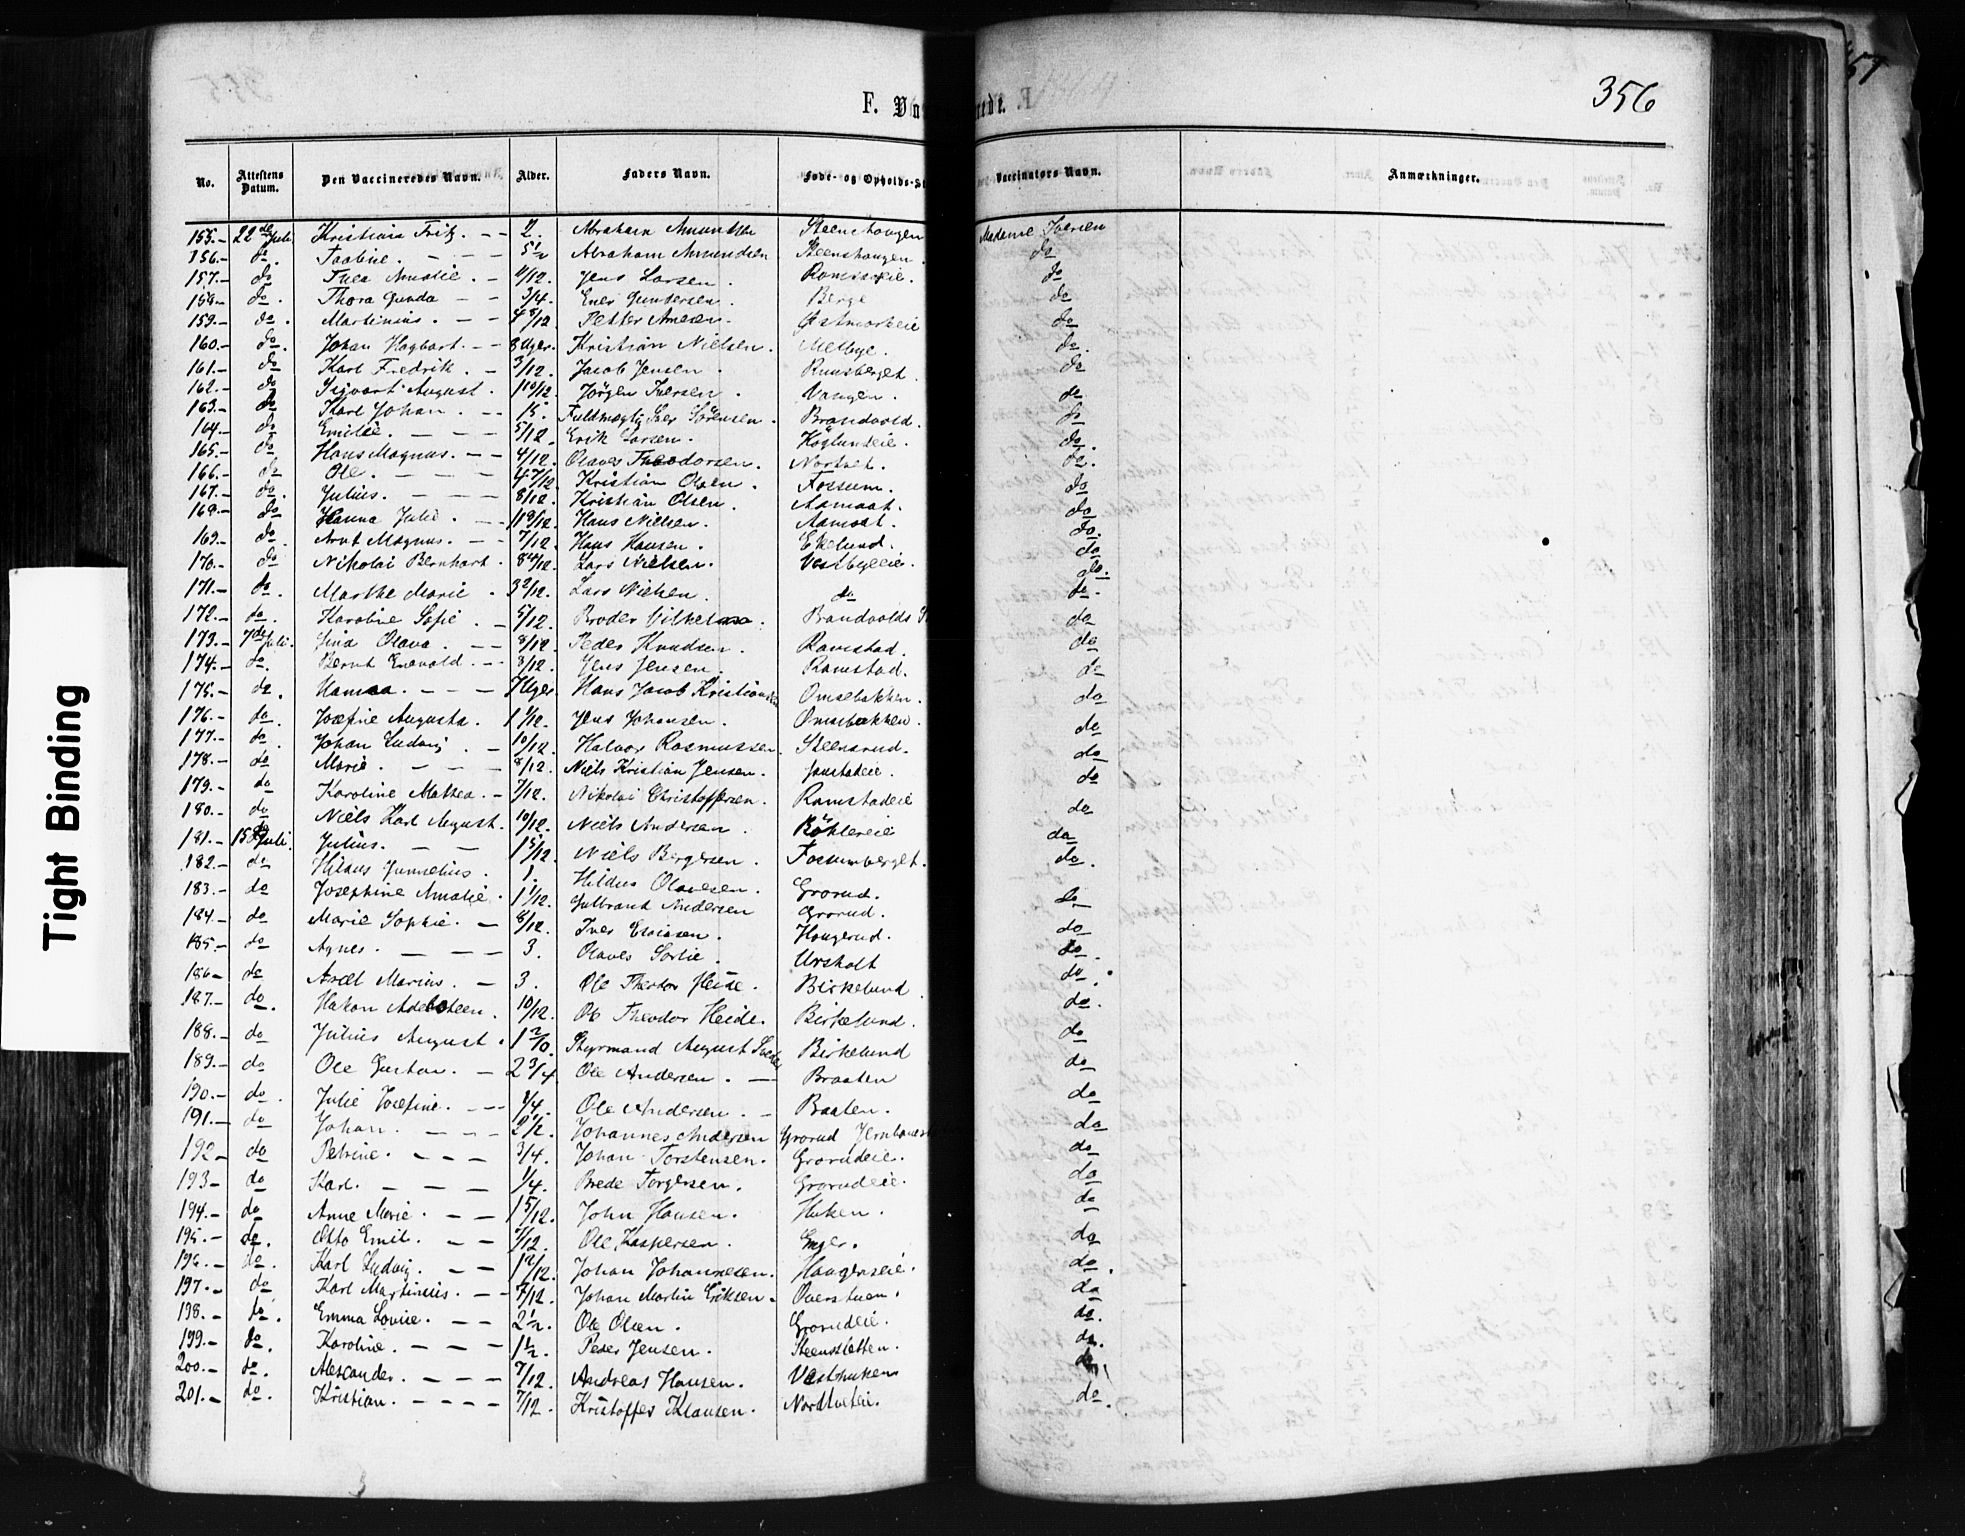 356
F. Va
redt.
No. Attestens Datum. Den Vaccineredes Navn. Alder. Faders Navn. Føde- og Opholds-St Vaccinators Navn. Anmærkninger.
155.- 22de Juli Kristian Fritz. - - 2. Abraham Amundsen Steenshaugen Madame Iversen
156.- do. - - - 5½ Abraham Amundsen Steenshaugen. do
157.- do Thea Amalie. - 4/12. Jens Larsen. do
158.- do. Thora Gunda - - 3/4. Gundersen. Berge do
159.- do. Martinius. - - 4 8/12 Petter do
160.- do. Johan Hagbart. - - 8 Uger. Kristian Nielsen. Melbye. do.
161.- do Karl Fredrik. - 3/12. Jacob Jensen. do
162.- do Sigvart August. 1 10/12. Jørgen Iversen. Vangen. do
163.- do Karl Johan. - - 15. Sørensen. Brandvold. do
164.- do Emilie. - - - 5/12. Erik Larsen. do.
165.- do Hans Magnus. - - 4/12. Olaves Theodorsen. do.
166.- do Ole. - - - 4 7/12. Kristian Olsen. Fossum. do
167.- do. Julius. - - - 8/12. Kristian Olsen. Aamodt. do
168.- do Hanna Julie. - - 1 9/12. Hans Nielsen. Aamodt. do.
169.- do. Arnt Magnus. - - 7/12. Hans Hansen. Ekelund. do
170.- do Nikolai Bernhart. 8 4/12. Lars Nielsen. Vestbyeeie. do.
171.- do. Marthe Marie. 3 2/12. Lars Nielsen. do do.
172.- do. Karoline Sofie. - 5/12. Broder Brandvolds do
173.- 7de Juli. Gina Olava. - - 8/12. Peder Knudsen. Ramstad. do
174.- do. Bernt Enevold. - - 8/12. Jens Jensen. Ramstad. do
175.- do. - - - 7 Uger Hans Jacob Kristiansen do
176.- do. Josefine Augusta. 1 1/12. Jens Johansen. do
177.- do. Johan Ludvig. - 10/12. Halvor Rasmussen. Steensrud. do
178.- do Marie. - - - 8/12. Niels Kristian Jensen. do
179.- do Karoline Mathea. - 7/12. Nikolai Christoffersen. Ramstadeie do
180.- do Niels Karl August. 10/12. Niels Andersen. do
181.- 15de Juli. Julius. - - 1 5/12. Niels Bergersen. Fossumberget. do.
182.- do Hildus 1. Hildus Olavesen. Grorud. do
183.- do Josephine Amalie. 1 1/12. Gulbrand Andersen Grorud. do
184.- do Marie Sophie. - 8/12. Iver Haugerud. do
185.- do Agnes. - - - 3. Olaves Sørlie. Ursholt do.
186.- do Axel Marius. - 3. Ole Theodor Heide. Birkelund do.
187.- do. Hakon Adelsteen. 10/12. Ole Theodor Heide. Birkelund. do
188.- do Julius August. Styrmand August Birkelund do
189.- do Ole Gustav. - 2 3/4. Ole Andersen. - Braaten do
190.- do. Julie Josefine. - - - 1/4. Ole Andersen. - Braaten. do
191.- do Johan. - - - 2½. Johannes Andersen Grorud Jernbanest do
192- do Petrine. - - - 3/4. Johan Torstensen. Grorudeie. do
193- do Karl. - - - 1/4. Brede Torgersen. Grorudeie. do
194.- do Anne Marie. - - 1 5/12. John Hansen. Huken. do
195.- do. Otto Emil. - - 7/12. Ole Kaspersen. Enger. do.
196.- do. Karl Ludvig. - - 1 2/12. Johan Johannesen. do
197.- do Karl Martinius. - - 7/12. Johan Martin Eriksen. do.
198.- do. Emma Lovise. - - 2½. Ole Olsen. Grorudeie. do.
199.- do. Karoline. - - - 1½. Peder Jensen. Steensletten. do
200.- do. Alexander. - - - 7/12. Andreas Hansen. do.
201.- do. Kristian. - - - - 7/12. Kristoffer Klausen. Nordtveteie.
Tight Binding